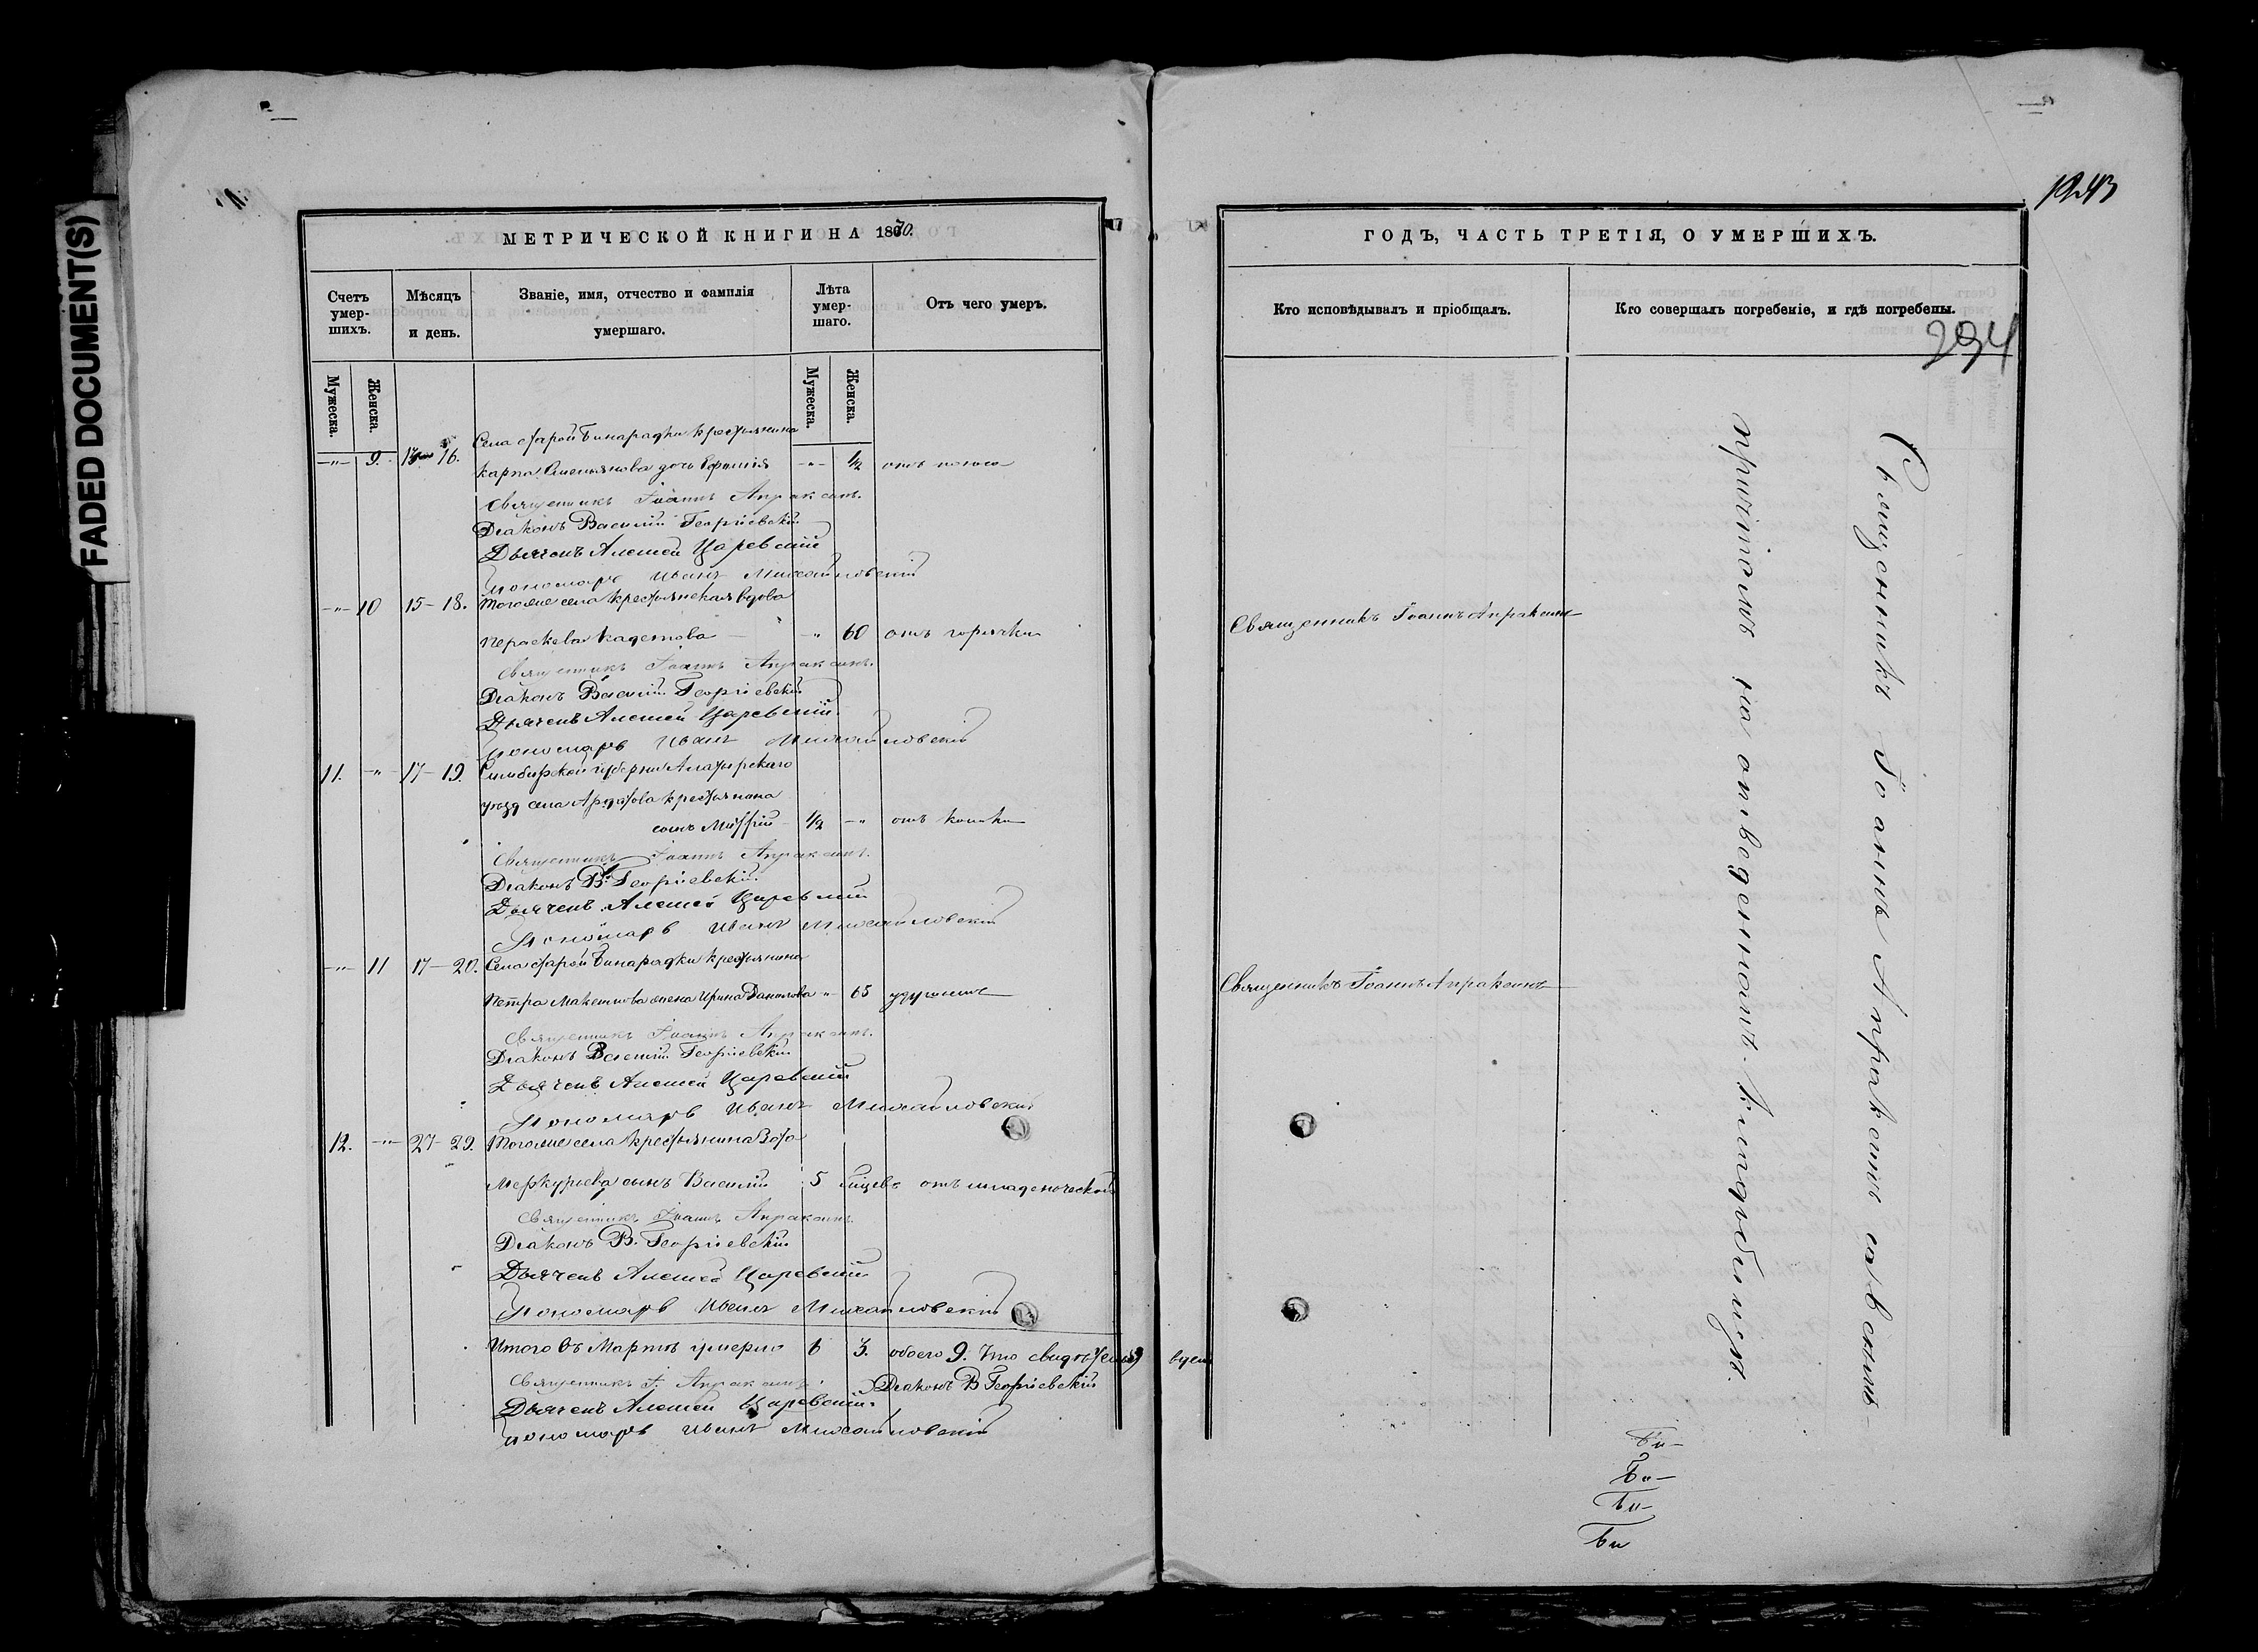 FADED DOCUMENT(S)
МЕТРИЧЕСКОЙ КНИГИ НА 1870.
Счетъ умер-шихъ.
Мѣсяцъ и день.
Званіе, имя, отчество и фамилія умершаго.
Лѣта умер-шаго.
Отъ чего умеръ.
Мужеска.
Женска.
Мужеска.
Женска.
Села старой Бинарадки крестьянина
-"- 9. 16. Карпа Емельянова дочь Ефимія -"- 1/2 отъ поноса
Священникъ Іоаннъ Апраксинъ.
Діаконъ Василій Георгіевскій
Дьячекъ Алексей Царевскій
Пономарь Иванъ Михайловскій
-"- 10 15-18. Тогоже села крестьянская вдова
Параскева " 60 отъ горячки
Священникъ Іоаннъ Апраксинъ.
Діаконъ Василій Георгіевскій
Дьячекъ Алексей Царевскій
Пономарь Иванъ Михайловскій
11. -"- 17-19. Симбирской губерніи Алатырскаго
уезд села Ардатова крестьянина
сынъ 1/2 -" отъ
Священникъ Іоаннъ Апраксинъ.
Діаконъ В. Георгіевскій.
Дьячекъ Алексей Царевскій
Пономарь Иванъ Михайловскій
-"- 11 17-20. Села старой Бинарадки крестьянина
Петра жена Ирина Данилова " 65 удушье
Священникъ Іоаннъ Апраксинъ.
Діаконъ Василій Георгіевскій
Дьячекъ Алексей Царевскій
Пономарь Иванъ Михайловскій
12. -"- 27-29. Тогоже села крестьянина
Меркурьева сынъ Василій 5 отъ младенческой
Священникъ Іоаннъ Апраксинъ.
Діаконъ В. Георгіевскій
Дьячекъ Алексей Царевскій
Пономарь Иванъ Михайловскій
Итого въ Мартѣ умерло 6 3. обоего 9. Что
Священникъ І. Апраксинъ. Діаконъ В Георгіевскій
Дьячекъ Алексей Царевскій
Пономарь Иванъ Михайловскій
294
ГОДЪ, ЧАСТЬ ТРЕТІЯ, О УМЕРШИХЪ.
Кто исповѣдывалъ и пріобщалъ.
Кто совершалъ погребеніе, и гдѣ погребены.
Священникъ Іоаннъ Апраксинъ
Священникъ Іоаннъ Апраксинъ
Священникъ Іоаннъ Апраксинъ съ
причтомъ на отведенномъ кладбищѣ.
Би-
Би-
Би-
Би